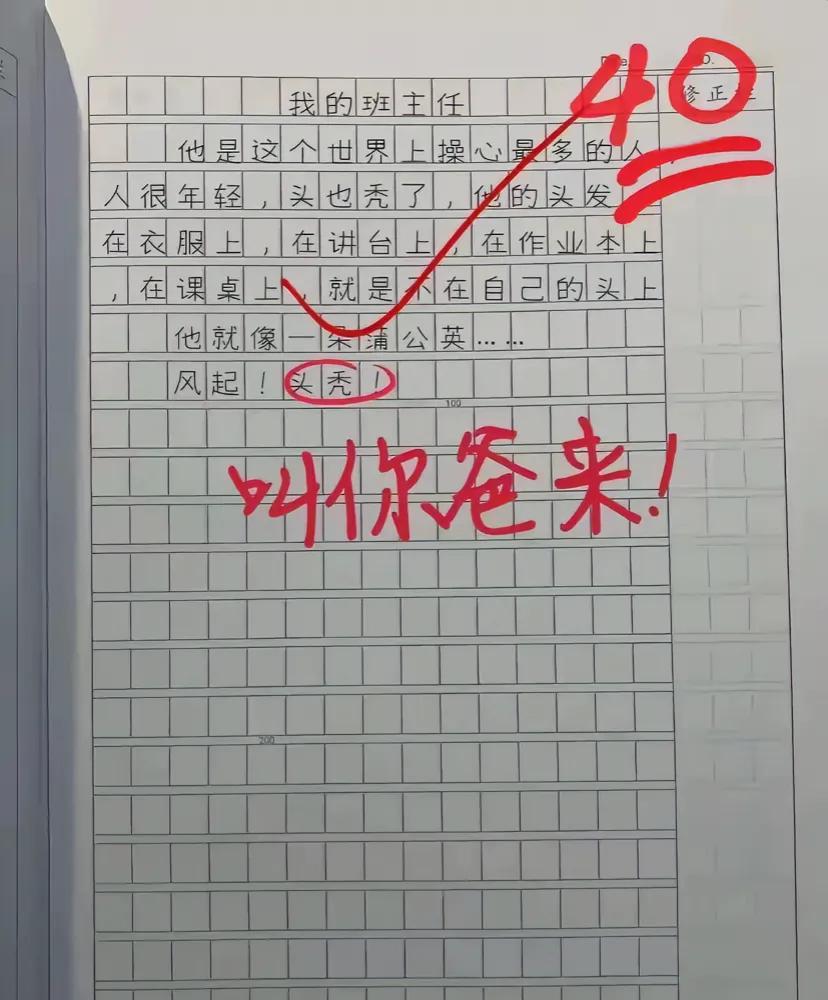 40
修正栏
我的班主任
他是这个世界上操心最多的人,
人很年轻,头也秃了,他的头发
在衣服上,在讲台上,在作业本上
,在课桌上,就是不在自己的头上
他就像一朵蒲公英……
风起!头秃!
100
叫你爸来!
200